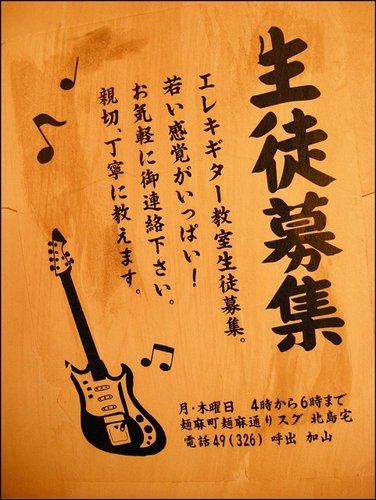 生徒募集
エレキギター教室生徒募集。
若い感覚がいっぱい!
お気軽に御連絡下さい。
親切、丁寧に教えます。
月・木曜日 4時から6時まで
麺麻町麺麻通りスグ 北島宅
電話49(326) 呼出 加山